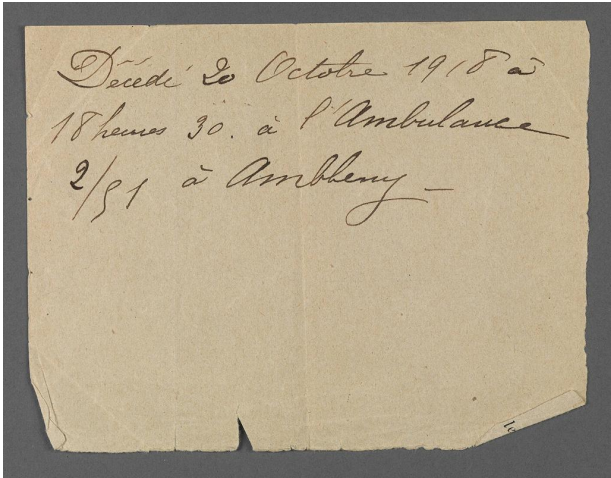 Décédé 20 Octobre 1918 à
18 heures 30. à l'Ambulance
2/51 à Ambleny _